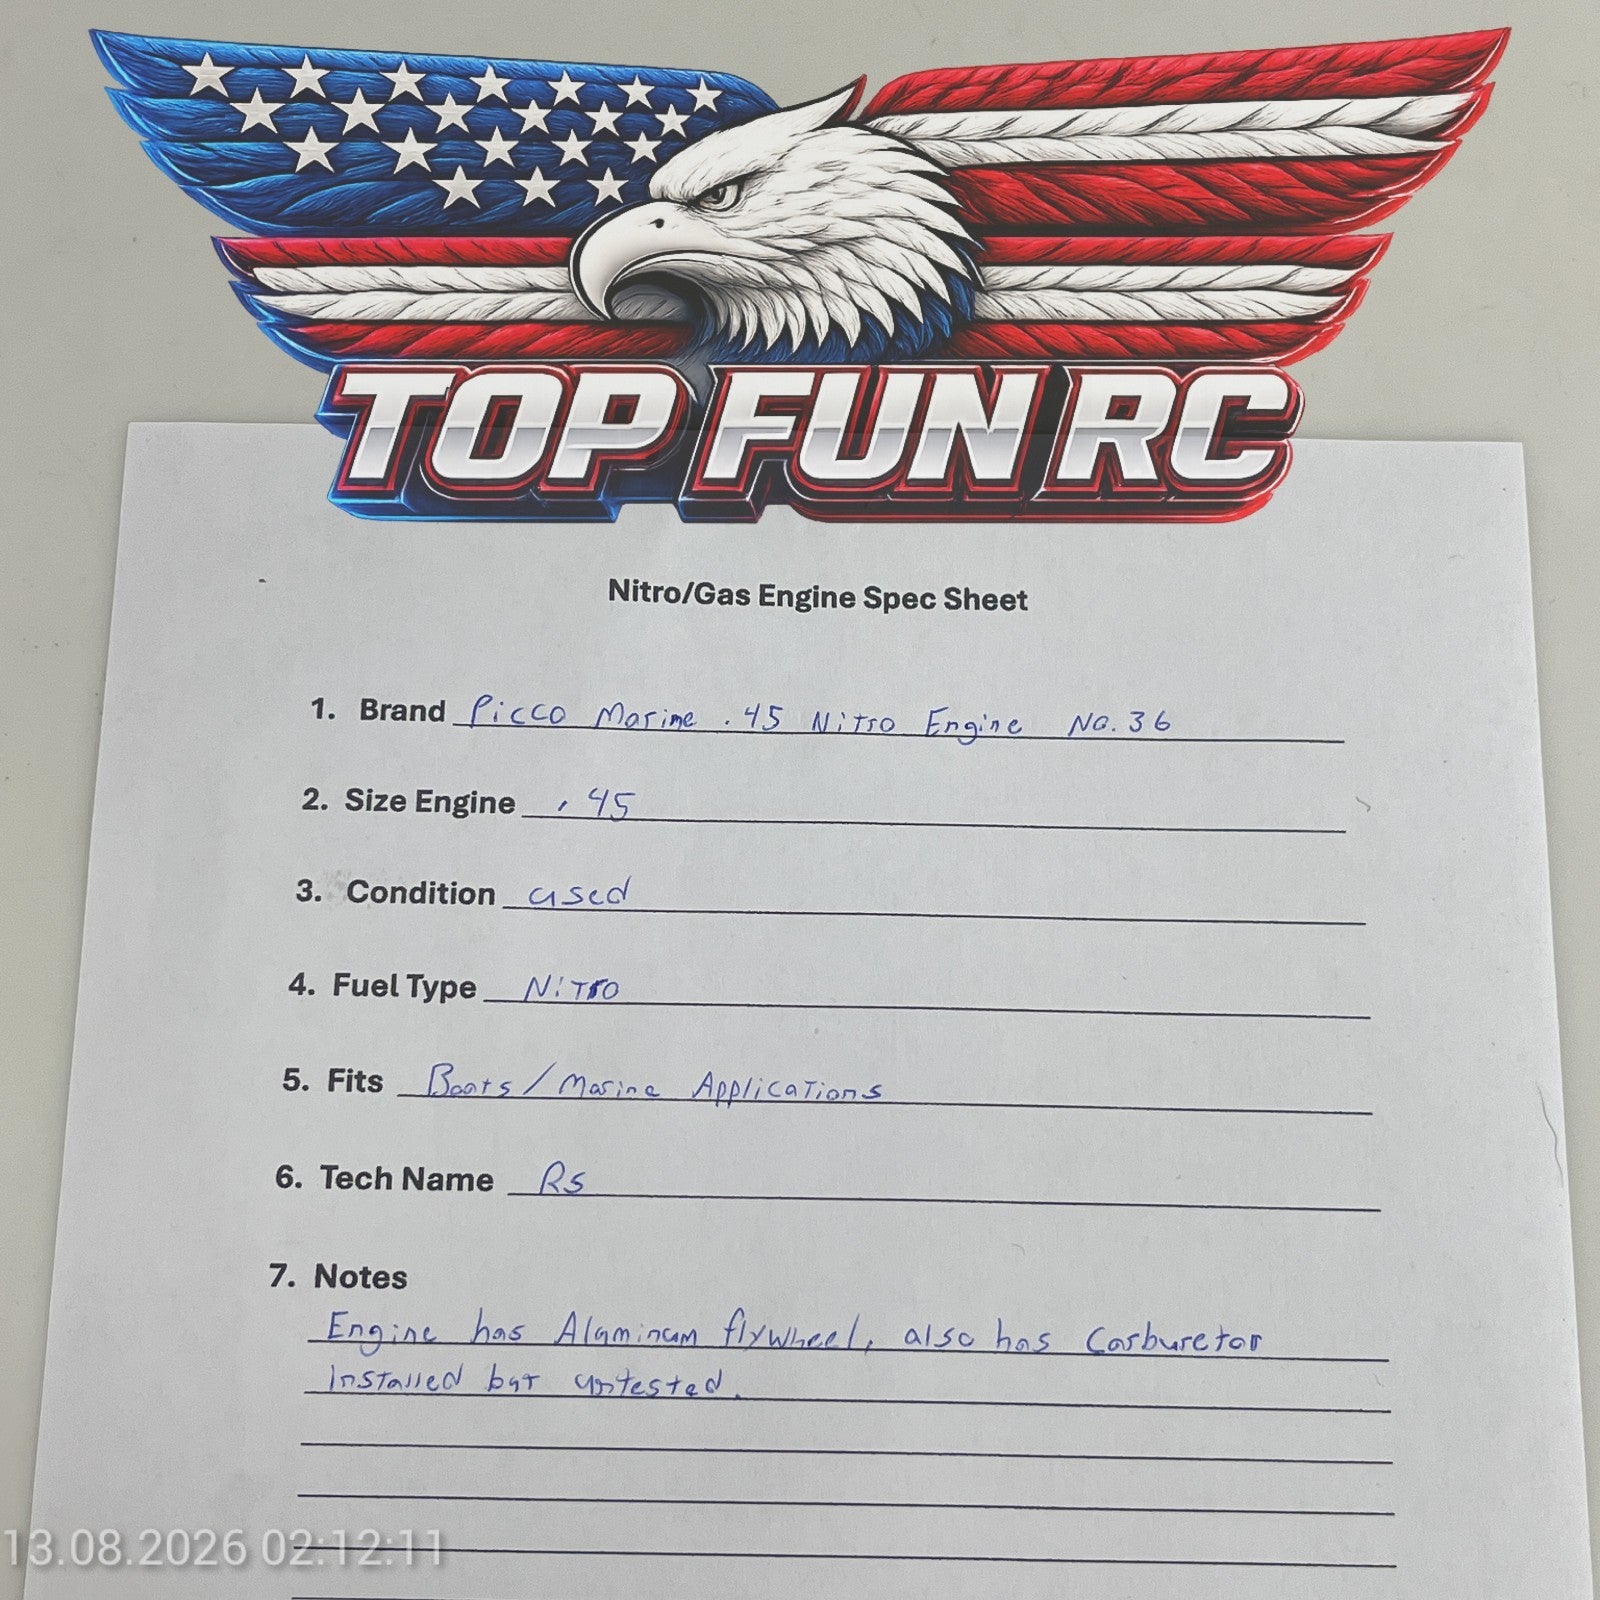 TOP FUN RC
Nitro/Gas Engine Spec Sheet
1. Brand Picco Marine .45 Nitro Engine No. 36
2. Size Engine .45
3. Condition used
4. Fuel Type Nitro
5. Fits Boats/Marine Applications
6. Tech Name RS
7. Notes
Engine has Aluminum flywheel, also has Carburetor
Installed but untested.
13.08.2026 02:12:11